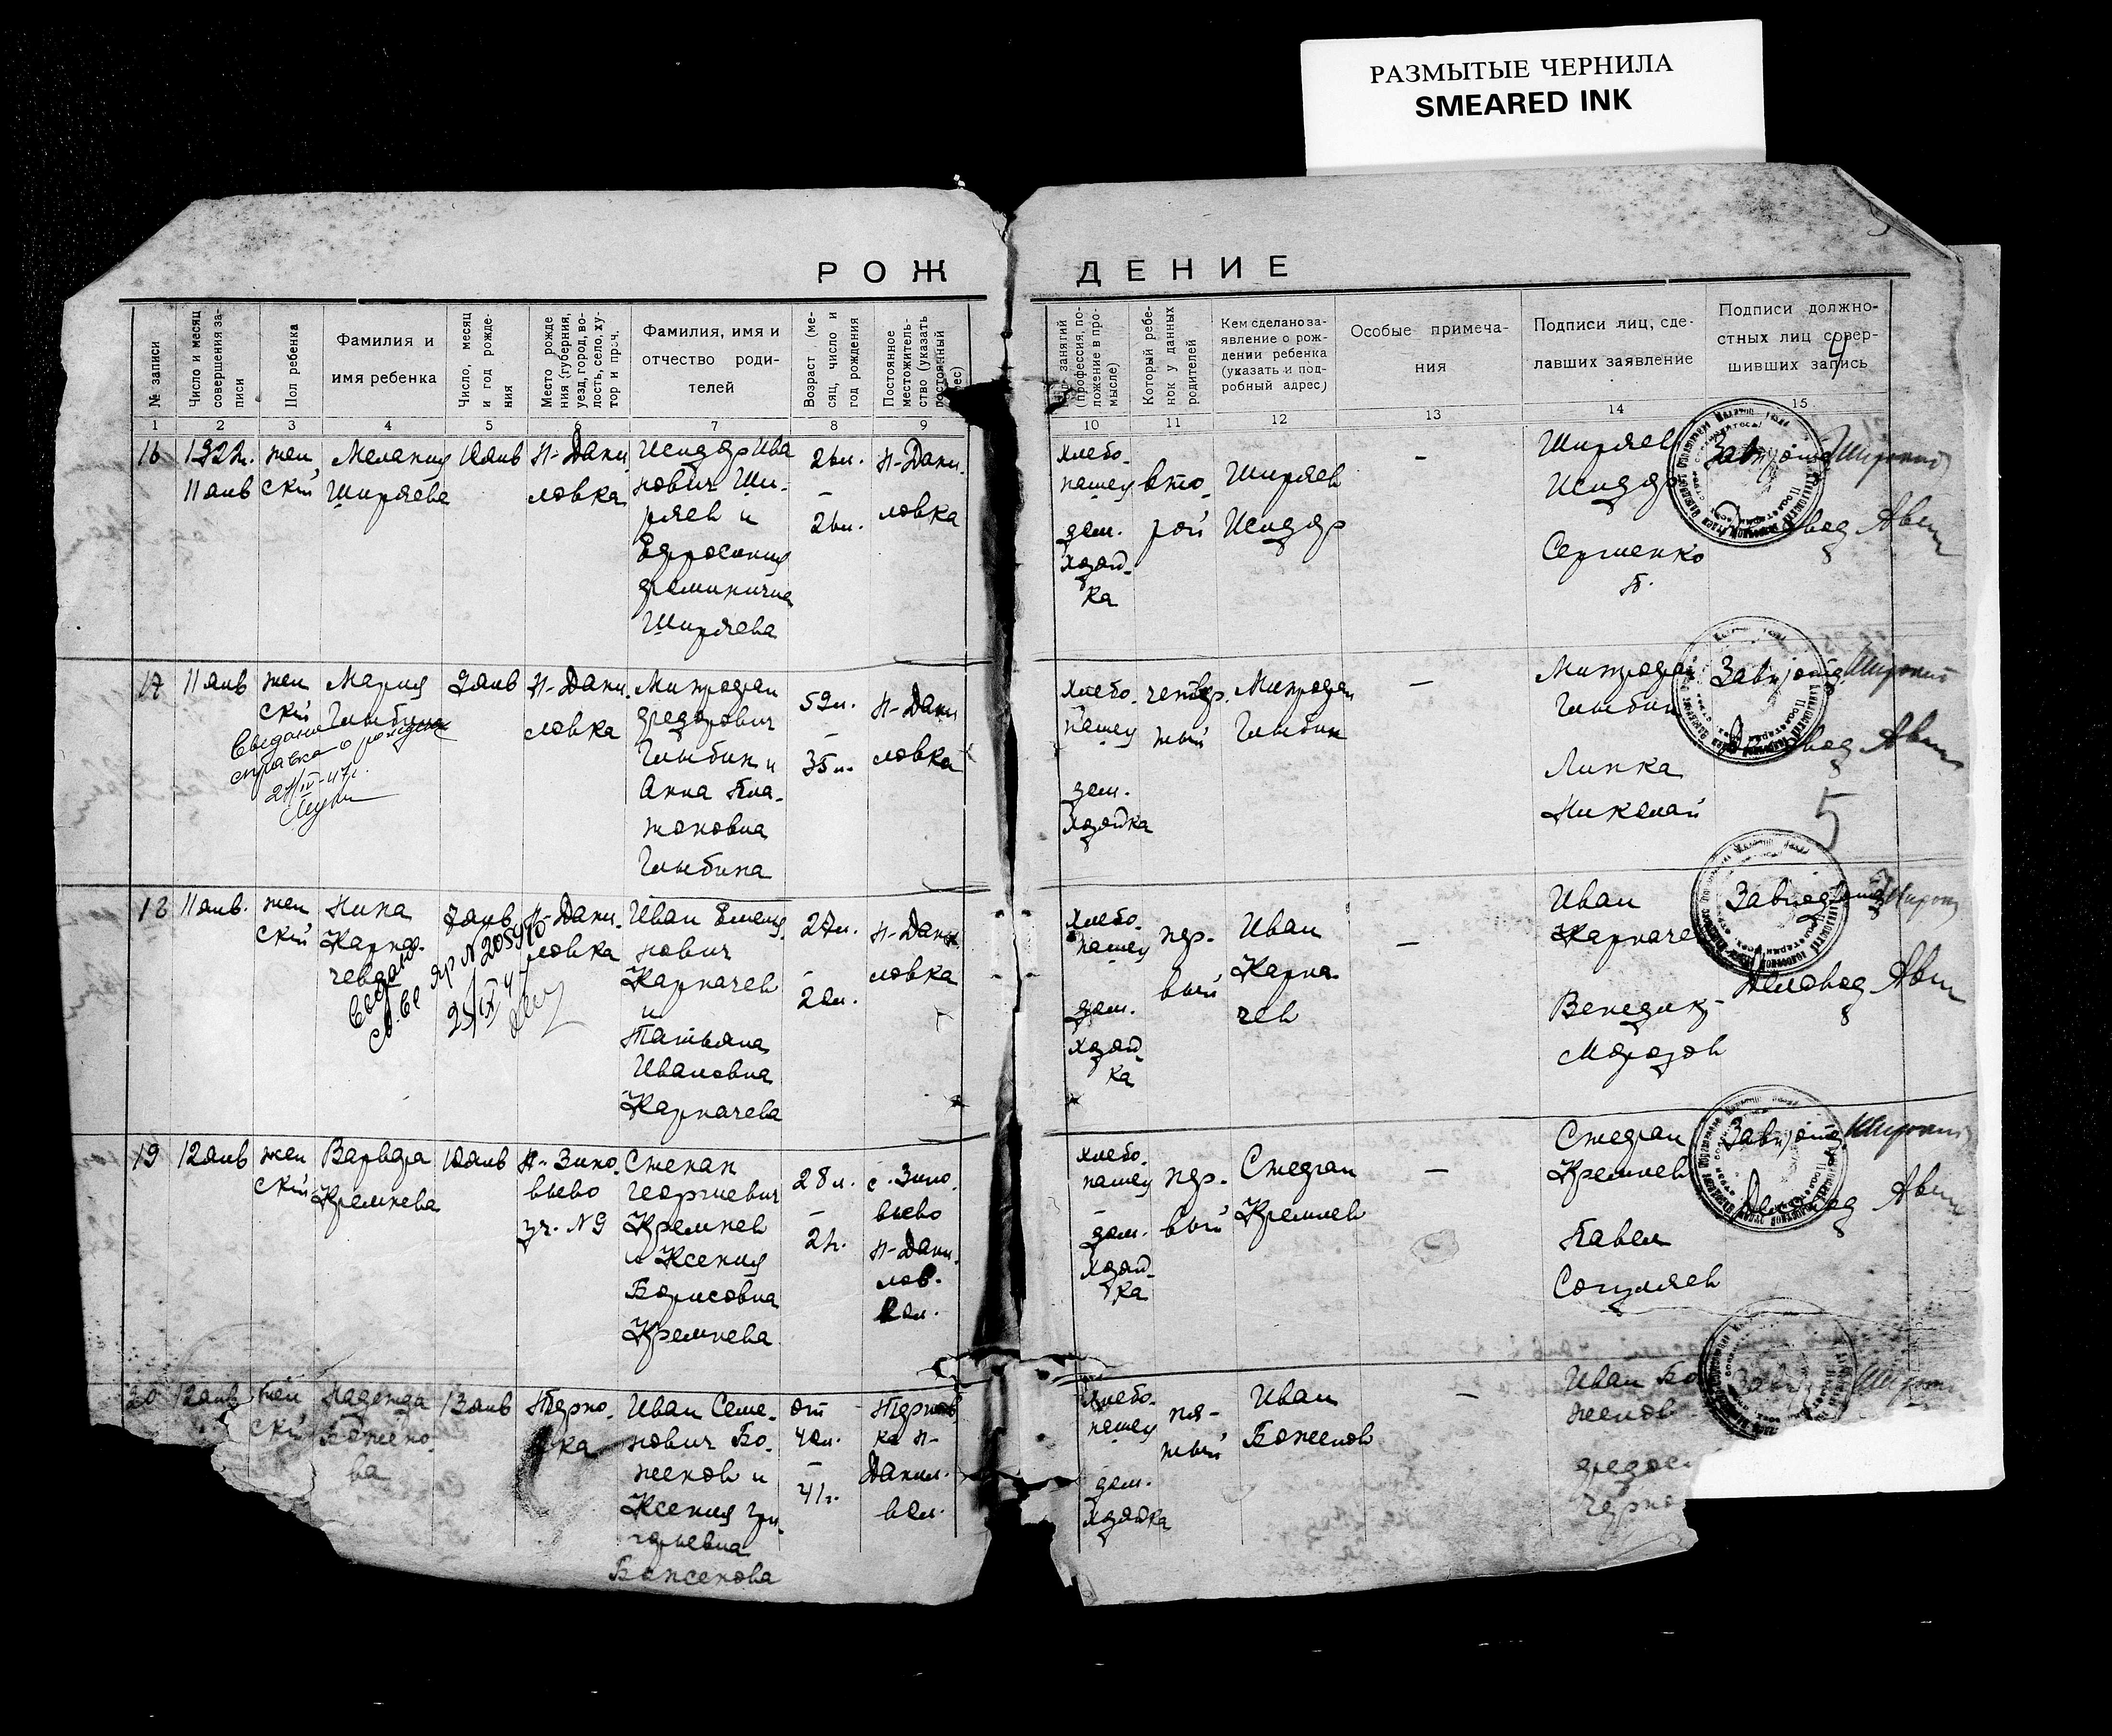 РАЗМЫТЫЕ ЧЕРНИЛА
SMEARED INK
РОЖДЕНИЕ
№ записи
Число и месяц совершения записи
Пол ребенка
Фамилия и
имя ребенка
Число, месяц и год рождения
Место рождения (губерния, уезд, город, волость, село, хутор и проч.
Фамилия, имя и
отчество роди-
телей
Возраст (месяц, число и год рождения
Постоянное местожительство (указать постоянный адрес)
занятий (профессия, положение в промысле)
Который ребенок у данных родителей
Кем сделано за-
явление о рож-
дении ребенка
(указать и под-
робный адрес)
Особые примеча-
ния
Подписи лиц, сде-
лавших заявление
Подписи должно-
стных лиц совер-
шивших запись
1 2 3 4 5 6 7 8 9 10 11 12 13 14 15
4
16
1922г.
11 янв
жен
ский
Мелания
Ширяева
10 янв
Н-Дани.
ловка
Исидор Ива
нович Ши.
ряев и
Ефросиния
Фоминична
Ширяева
26л.
–
26л.
Н-Дани.
ловка
хлебо.
пашец
дом.
хозяй.
ка
вто.
рой
Ширяев
Исидор
–
Ширяев
Исидор
Сергиенко
17
11 янв
жен
ский
Мария
Глыбина
справка о рождении
9 янв
Н-Дани.
ловка
Митрофан
Федорович
Глыбин и
Анна Пла.
тоновна
Глыбина
59л.
–
35л.
Н-Дани
ловка
хлебо.
пашец
дом.
хозяйка
четвер.
тый
Митрофан
Глыбин
–
Митрофан
Глыбин
Липка
Николай
5
18
11 янв.
жен
ский
Нина
Карпа.
чева
7 янв
№ 205970
Н-Дани.
ловка
Иван Емель
нович
Карпачев
и
Татьяна
Ивановна
Карпачева
27л.
–
20л.
Н-Дани
ловка
хлебо.
пашец
дом.
хозяй.
ка
пер.
вый
Иван
Карпа
чев
–
Иван
Карпаче
Венедик-
Морозов
Деловод
19
12 янв
жен
ский
Варвара
Кремнева
10 янв
Н-Зино.
вьево
уч. № 9
Степан
Георгиевич
Кремнев
и Ксения
Борисовна
Кремнева
28л.
–
21г.
с. Зино.
вьево
Н-Дани.
лов.
вол.
хлебо.
пашец
–
дом.
хозяй.
ка
пер.
вый
Стефан
Кремнев
–
Стефан
Кремнев
Павел
20
12 янв
жен
ский
Надежда
Божено.
ва
13 янв
Терно.
ка
Иван Семе.
нович Бо.
женов и
Ксения Гри.
горьевна
Боженова
от
40л.
–
41г.
Тернов
ка Н-
Данил.
вол.
хлебо.
пашец
дом.
хозяйка
пя-
тый
Иван
Боженов
–
Иван Бо
женов